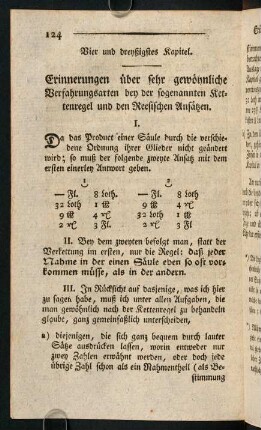 124
Vier und dreyßigstes Kapitel.
Erinnerungen über sehr gewöhnliche
Verfahrungsarten bey der sogenannten Ket-
tenregel und den Reesischen Ansätzen.
I.
Da das Product einer Säule durch die verschie-
dene Ordnung ihrer Glieder nicht geändert
wird; so muß der folgende zweyte Ansatz mit dem
ersten einerley Antwort geben.
— Fl. 8 Loth. — Fl. 8 Loth
32 Loth 1 ℔ 9 ℔ 4
9 ℔ 4 32 Loth 1 ℔
2 3 Fl. 2 3 Fl
II. Bey dem zweyten befolgt man, statt der
Verkettung im ersten, nur die Regel: daß jeder
Nahme in der einen Säule eben so oft vor-
kommen müsse, als in der andern.
III. In Rücksicht auf dasjenige, was ich hier
zu sagen habe, muß ich unter allen Aufgaben, die
man gewöhnlich nach der Kettenregel zu behandeln
glaubt, ganz gemeinfaßlich unterscheiden,
a) diejenigen, die sich ganz bequem durch lauter
Sätze ausdrücken lassen, worin entweder nur
zwey Zahlen erwähnt werden, oder doch jede
übrige Zahl schon als ein Nahmentheil (als Be-
stimmung